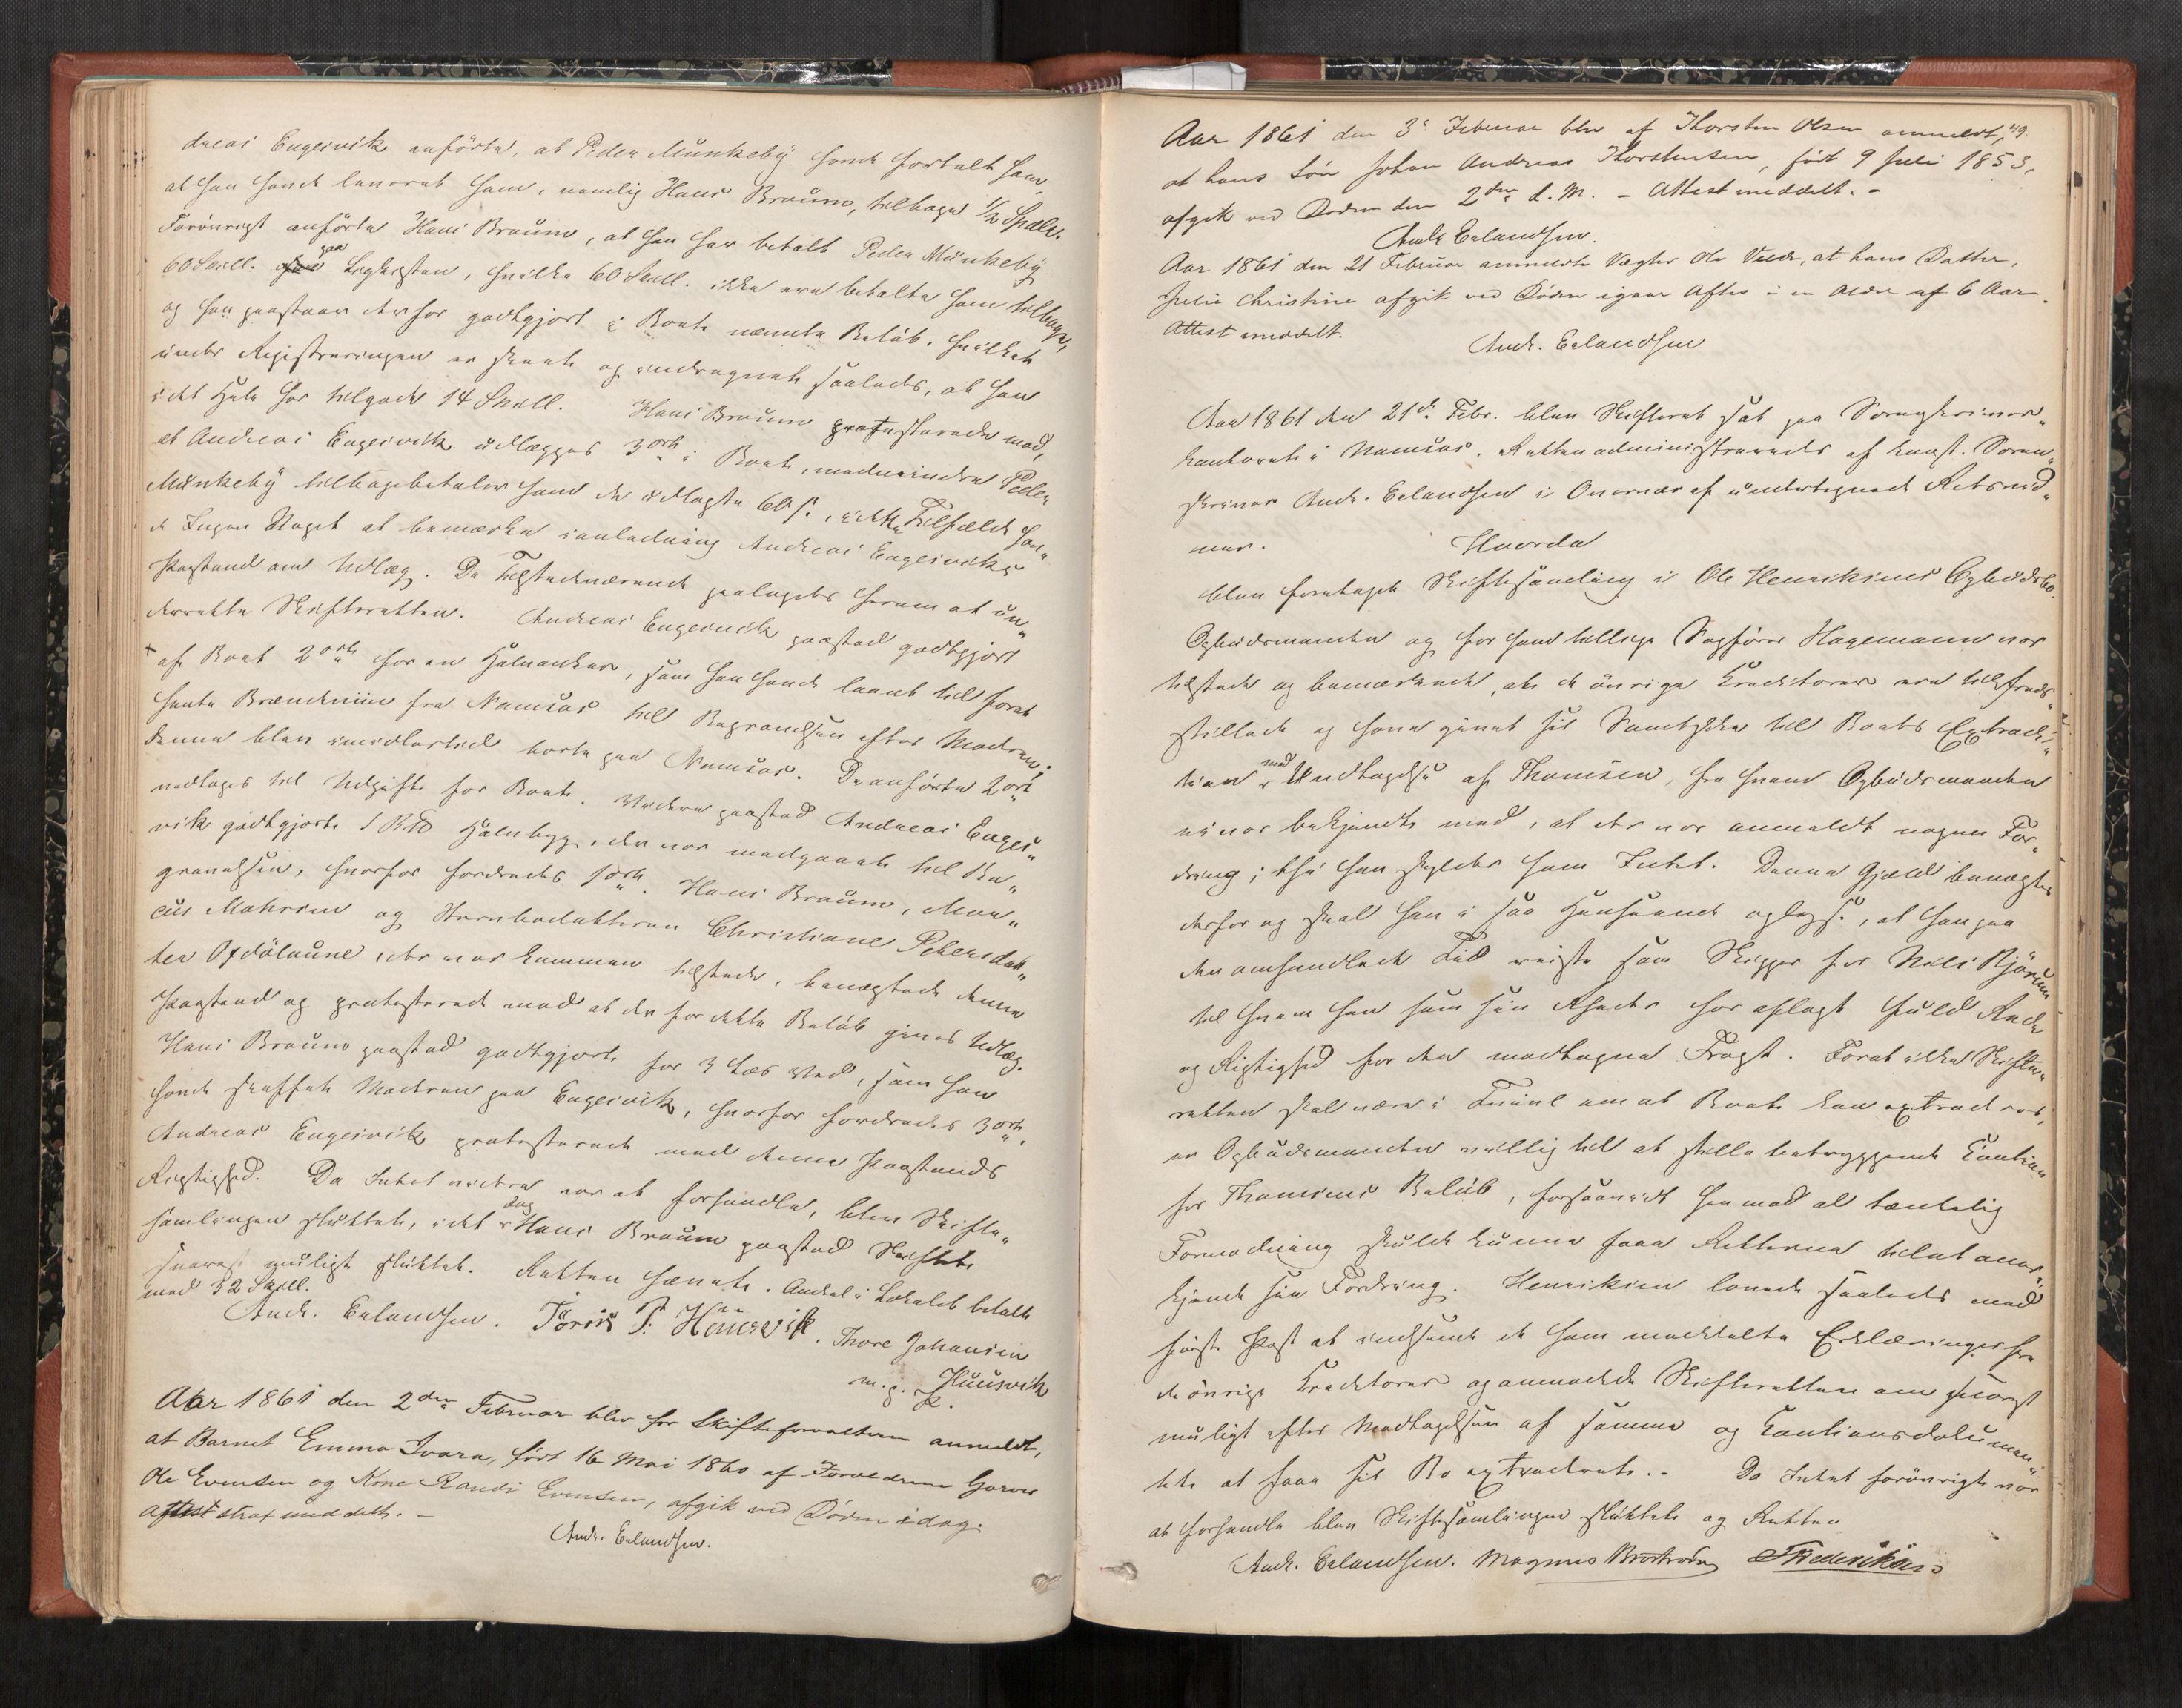 dreas Engesvik anførte, at Peder Munkeby havde fortalt ham
at han havde leveret ham, nemlig Hans Braum, tilbage 1/2 Spdlr.
Forøvrigt anførte Hans Braum, at han har betalt Peder Munkeby
60 Skill. paa Ligkisten, hvilke 60 Skill. ikke ere betalte ham tilbage,
og han paastaar derfor godtgjort i Boet nævnte Beløb, hvilket
under Registreringen er skeet og indregnet saaledes, at han
i det Hele har tilgode 14 Skill. Hans Braum protesterede mod,
at Andreas Engesvik udlægges 3 ort i Boet, medmindre Peder
Munkeby tilbagebetaler ham de udlagte 60 s., i dette Tilfælde hav-
de Ingen Noget at bemærke i anledning Andreas Engesviks
Paastand om Udlæg. De Tilstedeværende paalagdes herom at un-
derrette Skifteretten. Andreas Engesvik paastod godtgjort
af Boet 2 ort for en Halvanker, som han havde laant til foret
hente Brændeviin fra Namsos til Begravelsen efter Moderen;
denne blev imidlertid borte paa Namsos. De anførte 2 ort
vedtoges til Udgift for Boet. Videre paastod Andreas Enges-
vik godtgjort 1 Td Halvbyg, der var medgaaet til Be-
gravelsen, hvorfor fordredes 1 ort. Hans Braum,
og Christiane Petersdat-
ter Opdølaune, der var kommen tilstede, benægtede denne
Paastand og protesterede mod at der for dette Beløb gives Udlæg.
Hans Braum paastod godtgjort for 3 Læs Ved, som han
havde skaffet Moderen paa Engesvik, hvorfor fordredes 3 ort.
Andreas Engesvik protesterede mod denne Paastands
Rigtighed. Da Intet videre var at forhandle, blev Skifte-
samlingen sluttet, idet dog Hans Braum paastod Skiftet
snarest muligt sluttet. Retten hævet. Andel i Lokalet betalt
med 32 Skill.
Andr. Erlandsen. Thore Johansen
Huusvik
m. p. P.
Aar 1861 den 2den Februar blev for Skifteforvalteren anmeldt,
at Barnet Emma Ivara, født 16 Mai 1860 af Forældrene Garver
Ole Evensen og Kone Randi Evensen, afgik ved Døden i dag.
Attest strax meddelt. -
Andr. Erlandsen.
49.
Aar 1861 den 3e Februar blev af Thorsten Olsen anmeldt,
at hans Søn Johan Andreas Thorstensen, født 9 Juli 1853,
afgik ved Døden den 2den d. M. - Attest meddelt. -
Andr. Erlandsen.
Aar 1861 den 21 Februar anmeldte Vægter Ole, at hans Datter,
Julie Christine afgik ved Døden igaar Aftes i en Alder af 6 Aar.
Attest meddelt.
Andr. Erlandsen
Aar 1861 den 21de Febr. blev Skifteret sat paa Sorenskriver-
kontoret i Namsos, Retten administreredes af const. Soren-
skriver Andr. Erlandsen i Overvær af undertegnede Retsvid-
ner.
Hvorda
blev foretaget Skiftesamling i Ole Henriksens Opbudsbo.
Opbudsmanden og for ham tillige Sagfører Hagemann var
tilstede og bemærkede, at de øvrige Creditorer ere tilfreds-
stillede og have givet sit Samtykke til Boets Extradi-
tion med Undtagelse af Thomsen, fra hvem Opbudsmanden
ei var bekjendt med, at der var anmeldt nogen For-
dring; thi han skylder ham Intet. Denne Gjæld benægtes
derfor og skal han i saa Henseende oplyse, at han paa
den omhandlede Tid reiste som Skipper for Nils Bjørum
til hvem han som sin Rheder har aflagt fuld Rede
og Rigtighed for den modtagne Fragt. Foret ikke Skifte-
retten skal være i Tvivl om at Boet kan extraderes,
er Opbudsmanden villig til at stille betryggende Caution
for Thomsens Beløb, forsaavidt han mod al tænkelig
Formodning skulde kunne faa Retterne til at aner-
kjende sin Fordring. Henriksen lovede saaledes med
første Post at indsende de ham meddelte Erklæringer fra
de øvrige Creditorer og anmodede Skifteretten om snarest
muligt efter Modtagelsen af samme og Cautionsdokumen-
tet at faa sit Bo extraderet. - Da Intet forøvrigt var
at forhandle blev Skiftesamlingen sluttet og Retten
Andr. Erlandsen. Magnus Brostrøm